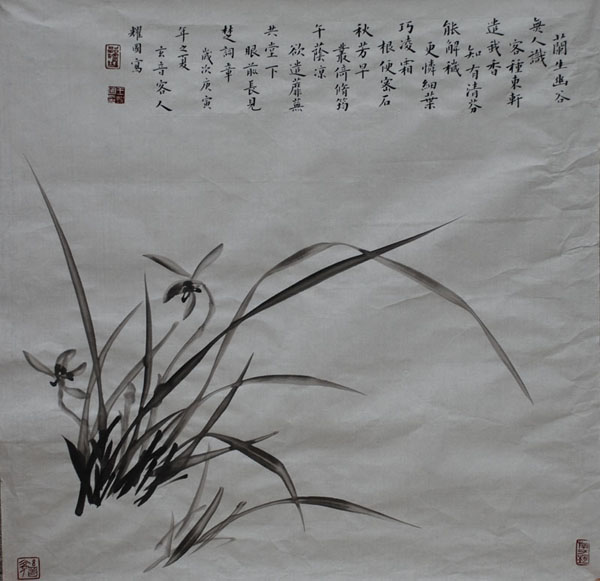 蘭生幽谷
無人識
客種東軒
遺我香
知有清芬
能解穢
更憐細葉
巧凌霜
根便密石
秋芳早
叢倚脩筠
午蔭涼
欲遣蘼蕪
共堂下
眼前長見
楚詞章
歲次庚寅
年之夏
玄音客人
耀國寫